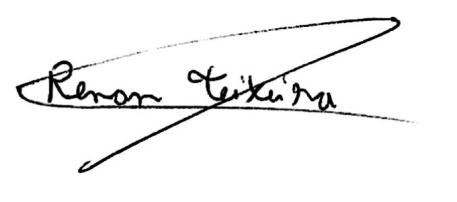 Renan Teixeira